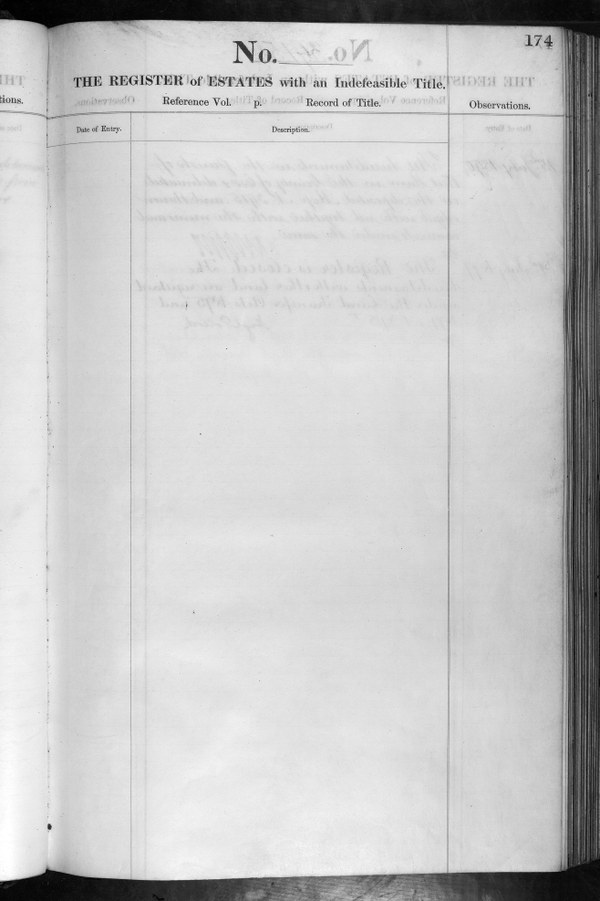 174
No.
THE REGISTER of ESTATES with an Indefeasible Title.
Reference Vol. p. Record of Title.
Observations.
Date of Entry.
Description.
tions.